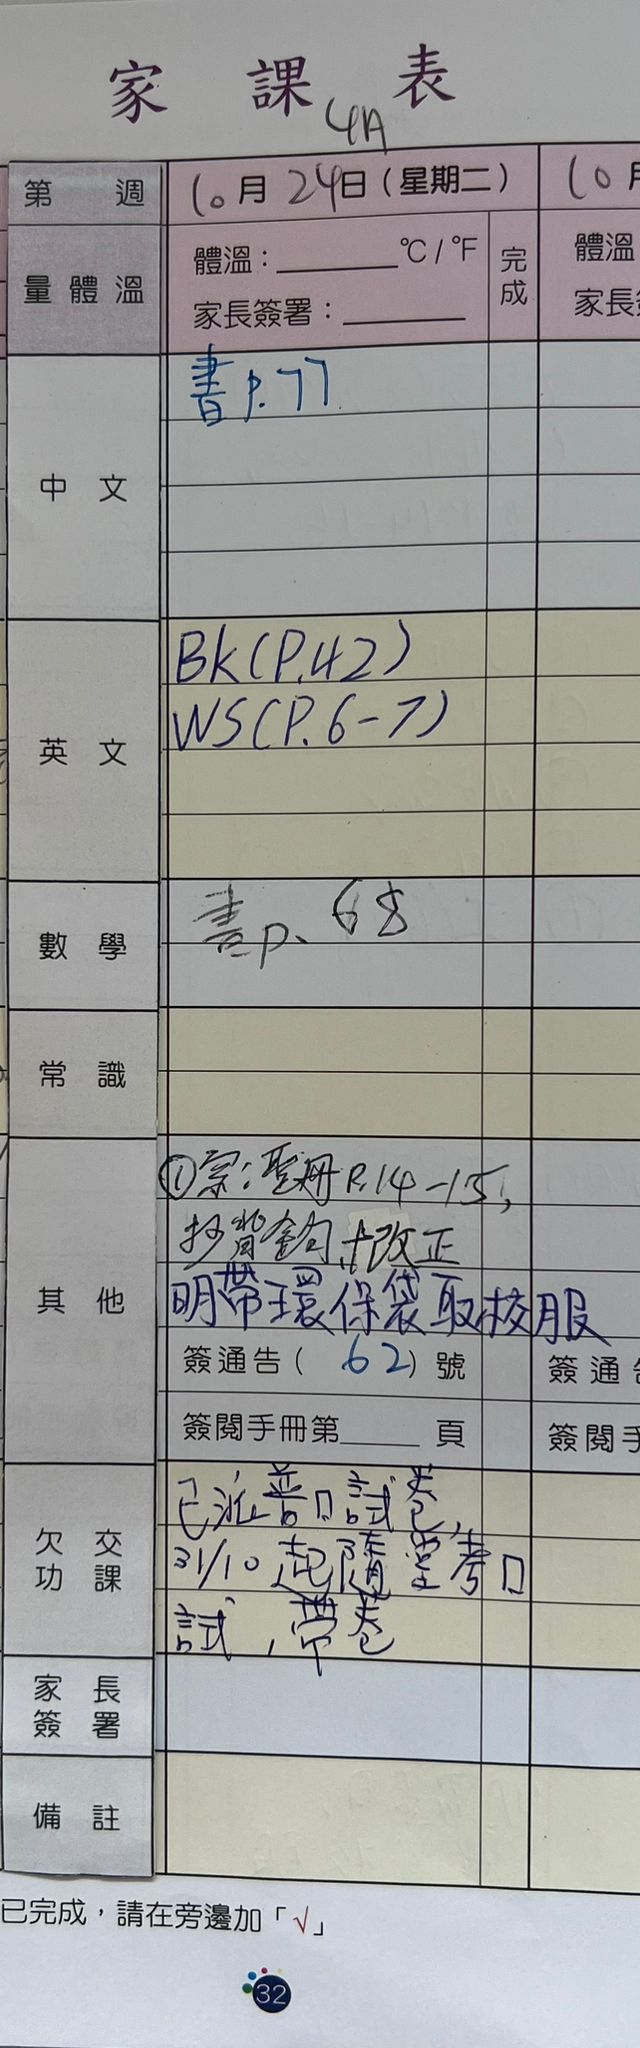 家 課 表
4A
第 週 10月24日(星期二) 10月
量體溫 體溫：______°C/°F 完成 體溫
家長簽署：______ 家長簽
中文 書P.77
英文 BK(P.42)
WS(P.6-7)
數學 書p.68
常識
其他 ①宗:聖冊P.14-15,
抄背金句+改正
明帶環保袋取校服
簽通告(62)號 簽通告
簽閱手冊第____頁 簽閱手
欠交功課 已派普口試卷,
31/10起隨堂考口
試,帶卷
家長簽署
備註
已完成，請在旁邊加「√」
32